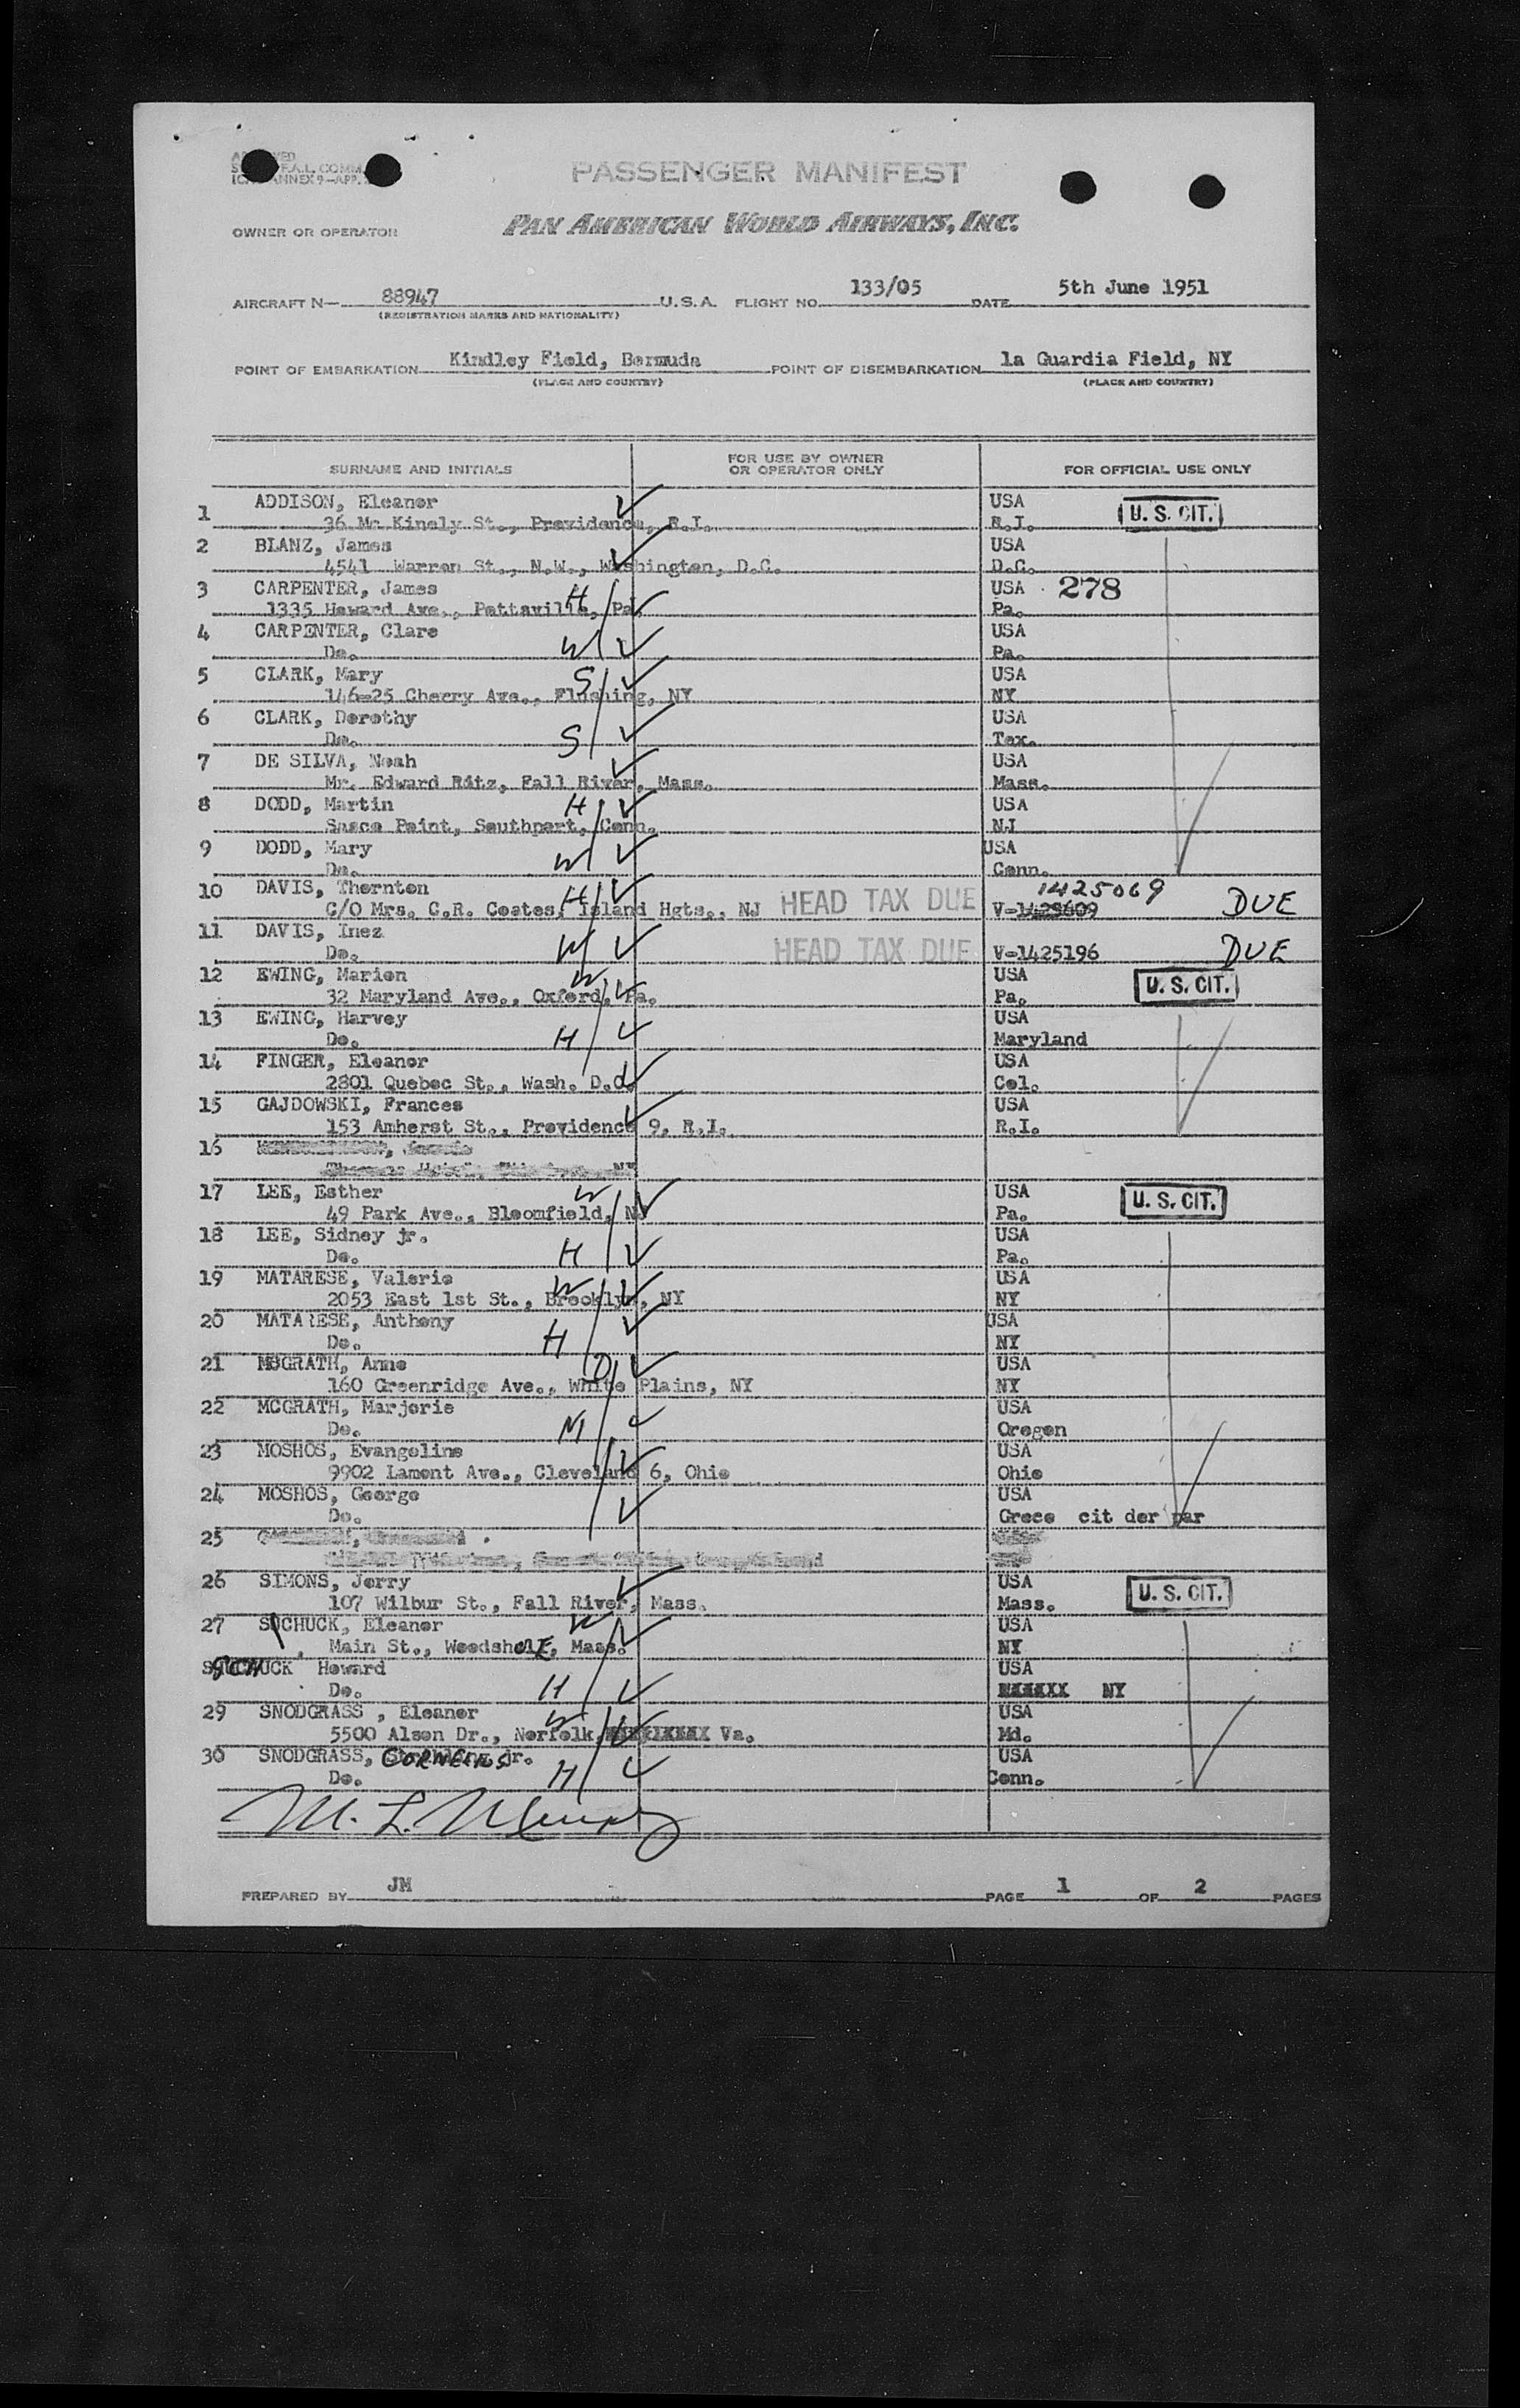 PASSENGER MANIFEST
OWNER OR OPERATOR PAN AMERICAN WORLD AIRWAYS, INC.
AIRCRAFT N— 88947 U.S.A. FLIGHT NO. 133/05 DATE 5th June 1951
(REGISTRATION MARKS AND NATIONALITY)
POINT OF EMBARKATION Kindley Field, Bermuda POINT OF DISEMBARKATION la Guardia Field, NY
(PLACE AND COUNTRY) (PLACE AND COUNTRY)
SURNAME AND INITIALS FOR USE BY OWNER OR OPERATOR ONLY FOR OFFICIAL USE ONLY
1 ADDISON, Eleanor USA U. S. CIT.
36 Mc Kinely St., Providence, R.I. R.I.
2 BLANZ, James USA
4541 Warren St., N.W., Washington, D.C. D.C.
3 CARPENTER, James H USA 278
1335 Howard Ave., Pottsville, Pa. Pa.
4 CARPENTER, Clare USA
Do. W Pa.
5 CLARK, Mary S USA
146-25 Cherry Ave., Flushing, NY NY
6 CLARK, Dorothy USA
Do. S Tex.
7 DE SILVA, Noah USA
Mr. Edward Ritz, Fall River, Mass. Mass.
8 DODD, Martin H USA
Sasco Point, Southport, Conn. NJ
9 DODD, Mary USA
Do. W Conn.
10 DAVIS, Thornton H 1425069
C/O Mrs. C.R. Coates, Island Hgts., NJ HEAD TAX DUE V-1429609 DUE
11 DAVIS, Inez
Do. W HEAD TAX DUE V-1425196 DUE
12 EWING, Marion W USA U. S. CIT.
32 Maryland Ave., Oxford, Pa. Pa.
13 EWING, Harvey USA
Do. H Maryland
14 FINGER, Eleanor USA
2801 Quebec St., Wash. D.C. Col.
15 GAJDOWSKI, Frances USA
153 Amherst St., Providence 9, R.I. R.I.
16
17 LEE, Esther W USA U. S. CIT.
49 Park Ave., Bloomfield, NJ Pa.
18 LEE, Sidney jr. USA
Do. H Pa.
19 MATARESE, Valerie W USA
2053 East 1st St., Brooklyn, NY NY
20 MATARESE, Anthony USA
Do. H NY
21 MCGRATH, Anne D USA
160 Greenridge Ave., White Plains, NY NY
22 MCGRATH, Marjorie USA
Do. M Oregon
23 MOSHOS, Evangeline USA
9902 Lamont Ave., Cleveland 6, Ohio Ohio
24 MOSHOS, George USA
Do. Grece cit der par
25
26 SIMONS, Jerry USA U. S. CIT.
107 Wilbur St., Fall River, Mass. Mass.
27 SUCHUCK, Eleanor W USA
Main St., Woodshole, Mass. NY
SUCHUCK Howard USA
Do. H NY
29 SNODGRASS, Eleanor W USA
5500 Alson Dr., Norfolk, Va. Md.
30 SNODGRASS, CORNELIUS jr. USA
Do. H Conn.
PREPARED BY JM PAGE 1 OF 2 PAGES